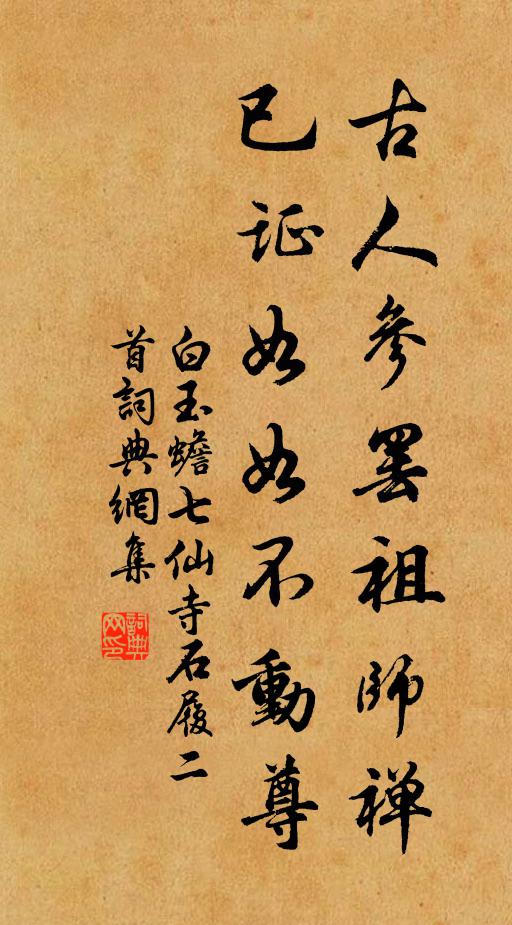 古人參罢祖師禅
已证如如不動尊
白玉蟾七仙寺石履二
首詞典網集
詞典网印